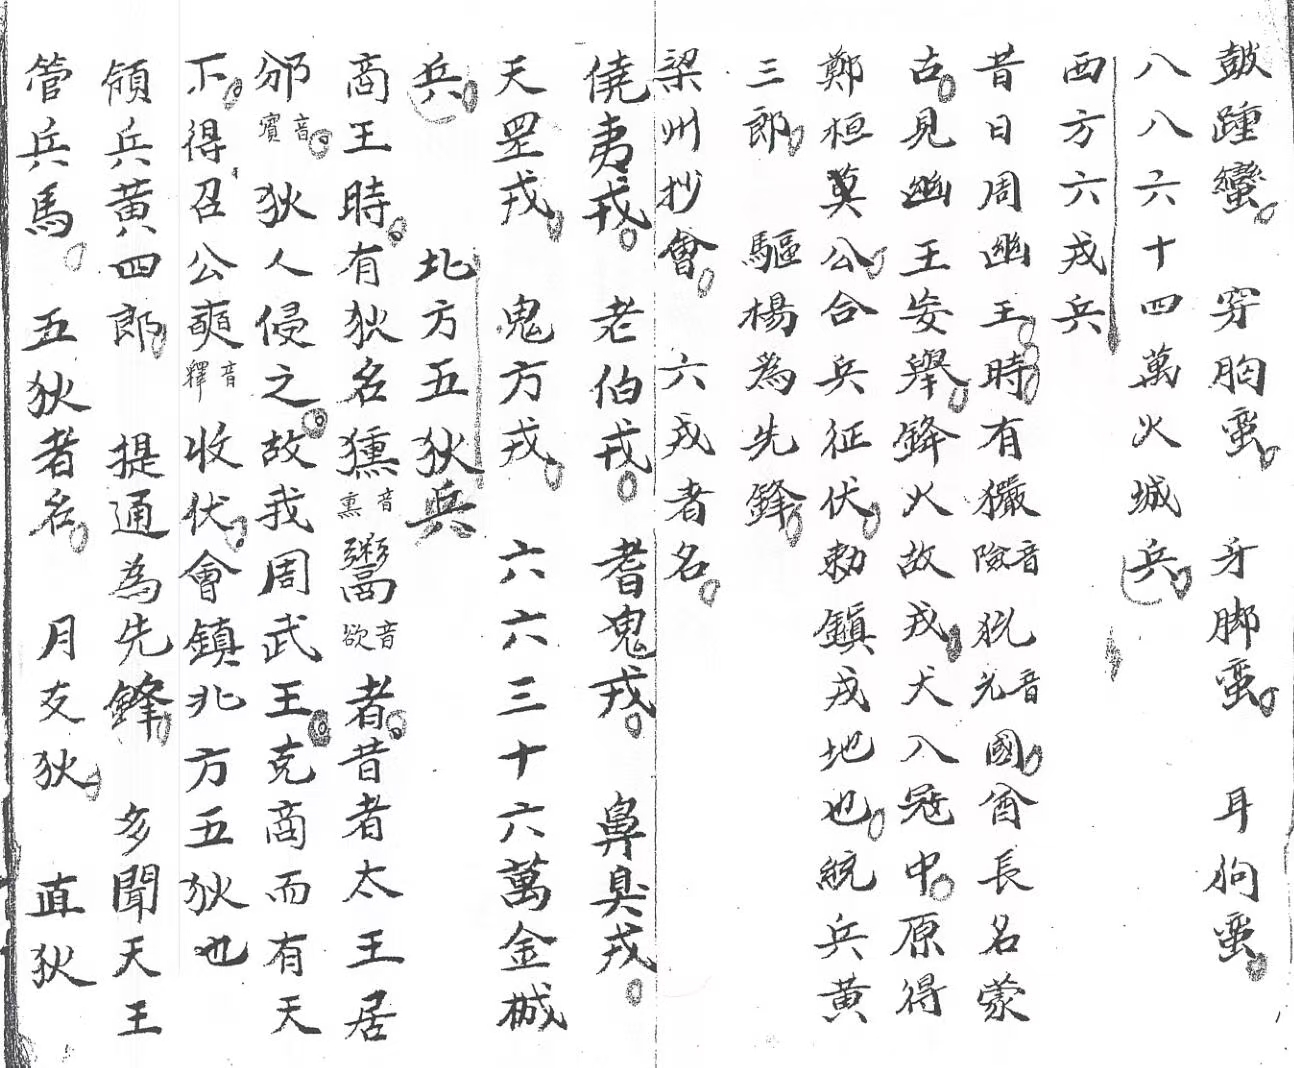 皷踵蠻 穿胸蛮 牙脚蛮 耳狗蛮
八八六十四萬火城兵
西方六戎兵
昔日周幽王時有玁音險狁音允國酋長名蒙
古見幽王妄舉鋒火故戎犬入冦中原得
鄭桓莫公合兵征伏勅鎮戎地也統兵黄
三郎 驅楊為先鋒
梁州抄會 六戎者名
僥夷戎 老伯戎 耆嵬戎 鼻臭戎
天罡戎 鬼方戎 六六三十六萬金械
兵 北方五狄兵
商王時有狄名獯音熏鬻音欲者昔者太王居
邠音賓狄人侵之故我周武王克商而有天
下得召公奭音釋收伏會鎮北方五狄也
領兵黄四郎 提通為先鋒 多聞天王
管兵馬 五狄者名 月支狄 直狄